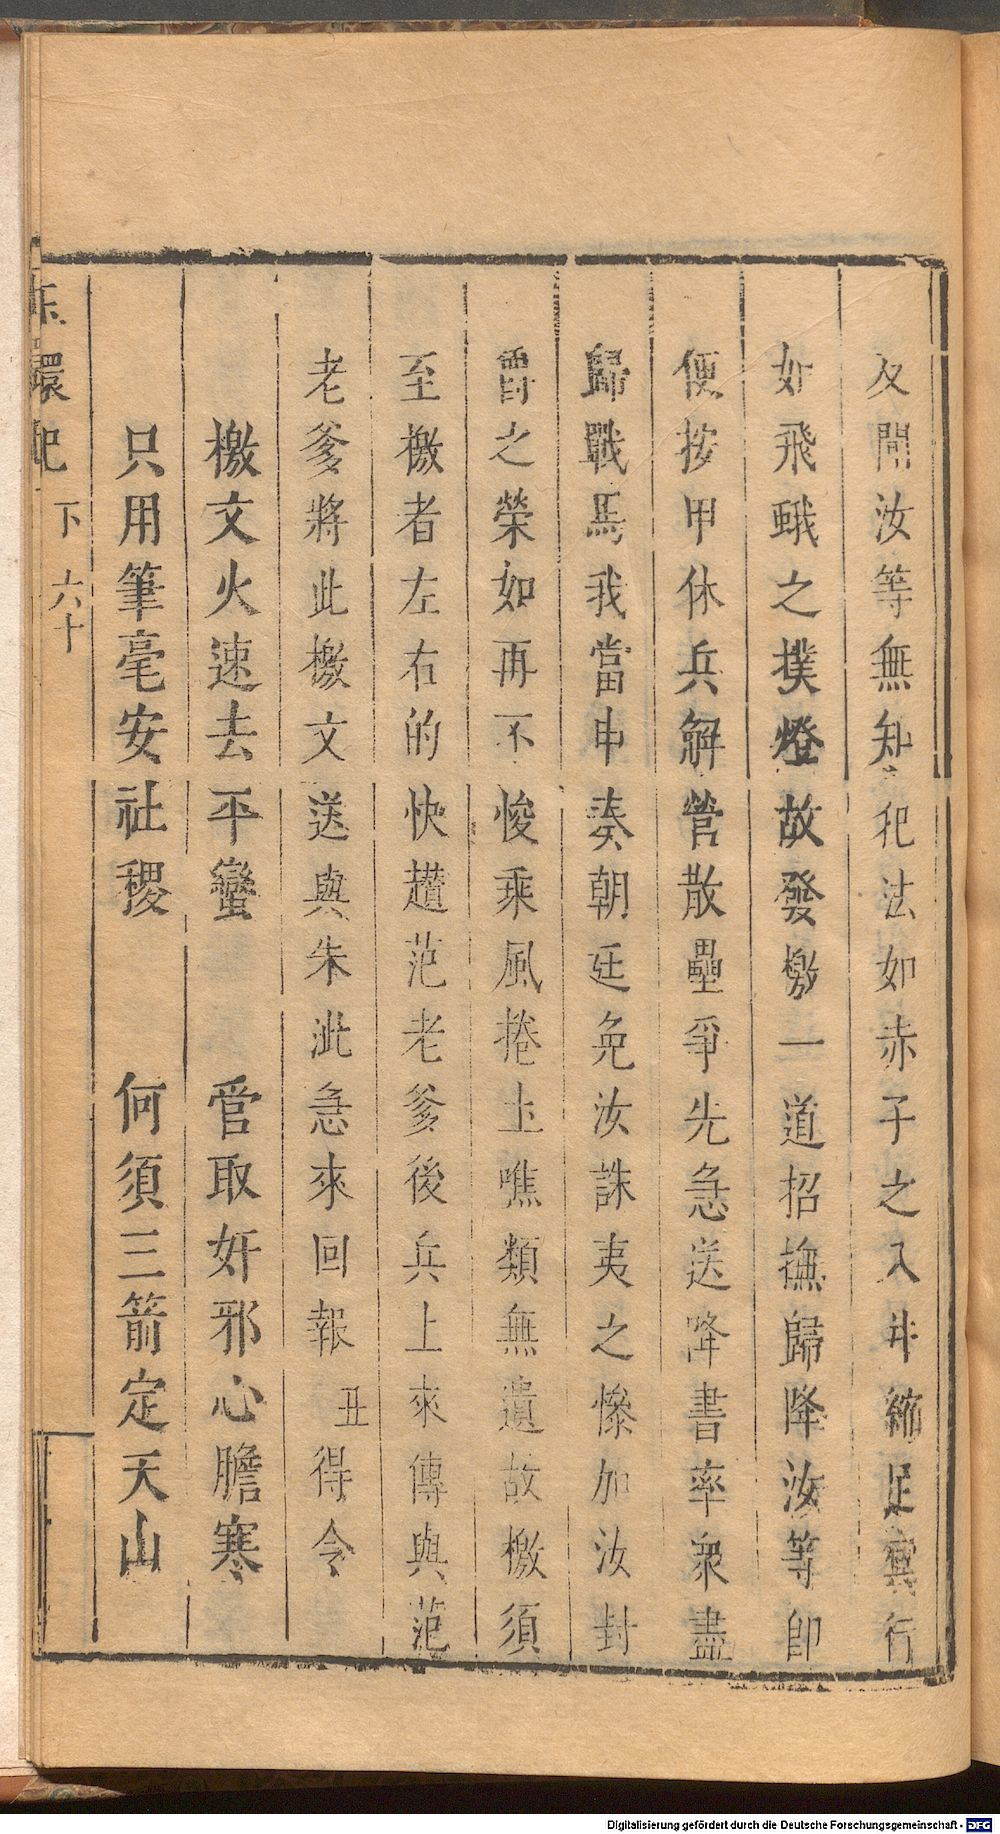 又聞汝等無知犯法如赤子之入井縮足冥行
如飛蛾之撲燈故發檄一道招撫歸降汝等即
便按甲休兵解營散壘爭先急送降書率衆盡
歸戰馬我當申奏朝廷免汝誅夷之慘加汝封
爵之榮如再不悛乘風捲土噍類無遺故檄須
至檄者左右的快趲范老爹後兵上來傳與范
老爹將此檄文送與朱泚急來回報 丑 得令
檄文火速去平蠻 管取奸邪心膽寒
只用筆毫安社稷 何須三箭定天山
玉環記 下 六十
Digitalisierung gefördert durch die Deutsche Forschungsgemeinschaft - DFG